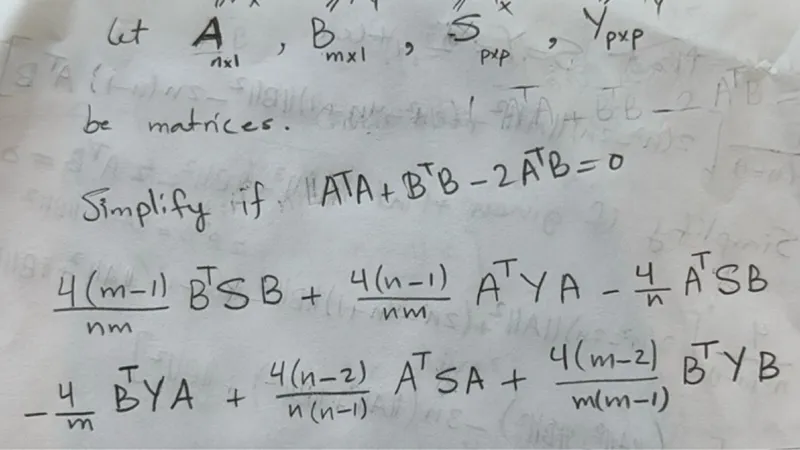 Let A n×1 , B m×1 , S p×p , Y p×p
be matrices.
Simplify if AᵀA + BᵀB − 2AᵀB = 0
4(m−1)/nm BᵀSB + 4(n−1)/nm AᵀYA − 4/n AᵀSB
− 4/m BᵀYA + 4(n−2)/n(n−1) AᵀSA + 4(m−2)/m(m−1) BᵀYB